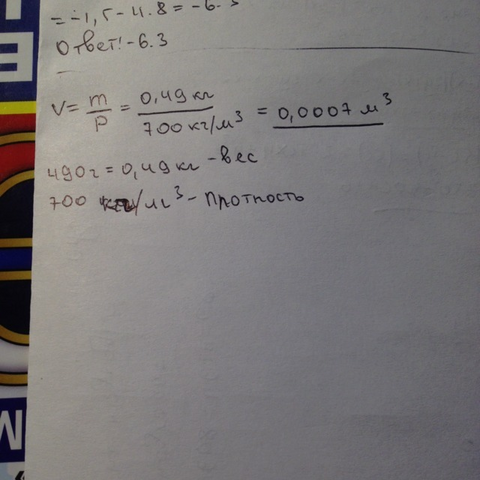 = -1,5 - 4.8 = -6.3
Ответ! -6.3
V = m/p = 0,49 кг / 700 кг/м³ = 0,0007 м³
490г = 0,49 кг - вес
700 кг/м³ - Протность